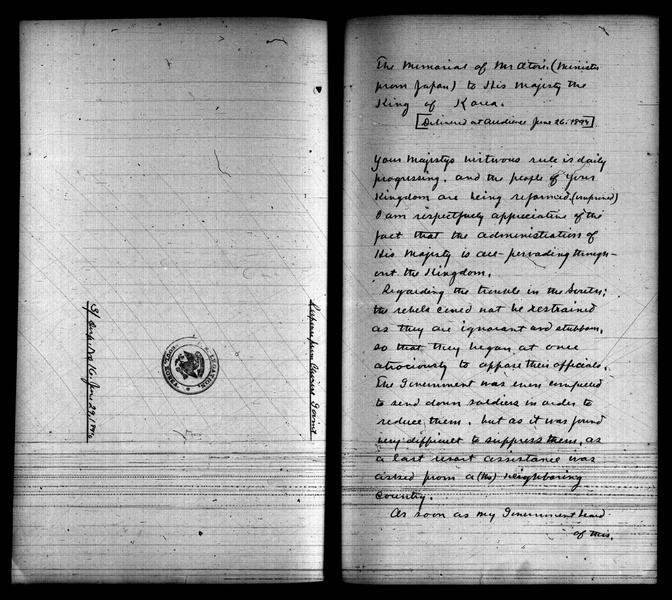 The Memorial of Mr Otori. (Minister
from Japan) to His Majesty the
King of Korea.
Delivered at Audience June 26. 1894
Your Majestys virtuous rule is daily
progressing. and the people of your
Kingdom are being reformed. (improved)
I am respectfuly appreciative of the
fact that the administration of
His Majesty is all-pervading through-
out the Kingdom.
Regarding the trouble in the South;
the rebels could not be restrained
as they are ignorant and stubborn,
so that they began at once
atrociously to oppose their officials.
The Government was even compelled
to send down soldiers in order to
reduce them. but as it was found
very difficult to suppress them, as
a last resort assistance was
asked from a (the) neighboring
Country.
As soon as my Government heard
of this.
June 29, 1894